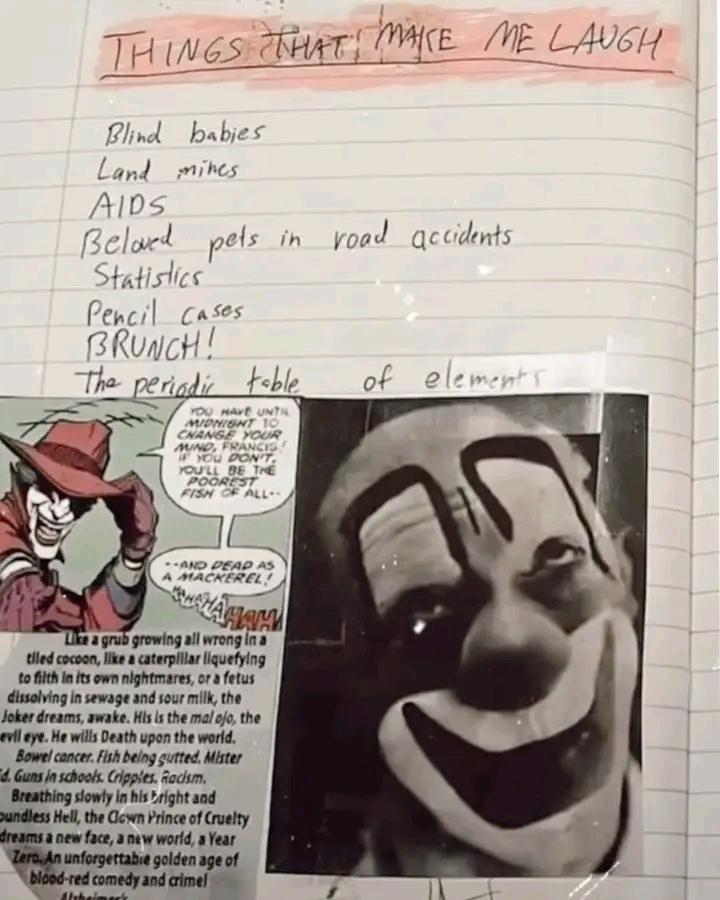 THINGS THAT MAKE ME LAUGH
Blind babies
Land mines
AIDS
Beloved pets in road accidents
Statistics
Pencil cases
BRUNCH!
The periodic table of elements
YOU HAVE UNTIL
MIDNIGHT TO
CHANGE YOUR
MIND, FRANCIS!
IF YOU DON'T,
YOU'LL BE THE
POOREST
FISH OF ALL--
--AND DEAD AS
A MACKEREL!
HAHAHA HAH!
Like a grub growing all wrong in a
tiled cocoon, like a caterpillar liquefying
to filth in its own nightmares, or a fetus
dissolving in sewage and sour milk, the
Joker dreams, awake. His is the mal ojo, the
evil eye. He wills Death upon the world.
Bowel cancer. Fish being gutted. Mister
d. Guns in schools. Cripples. Racism.
Breathing slowly in his bright and
oundless Hell, the Clown Prince of Cruelty
dreams a new face, a new world, a Year
Zero. An unforgettable golden age of
blood-red comedy and crime!
Alzheimer's